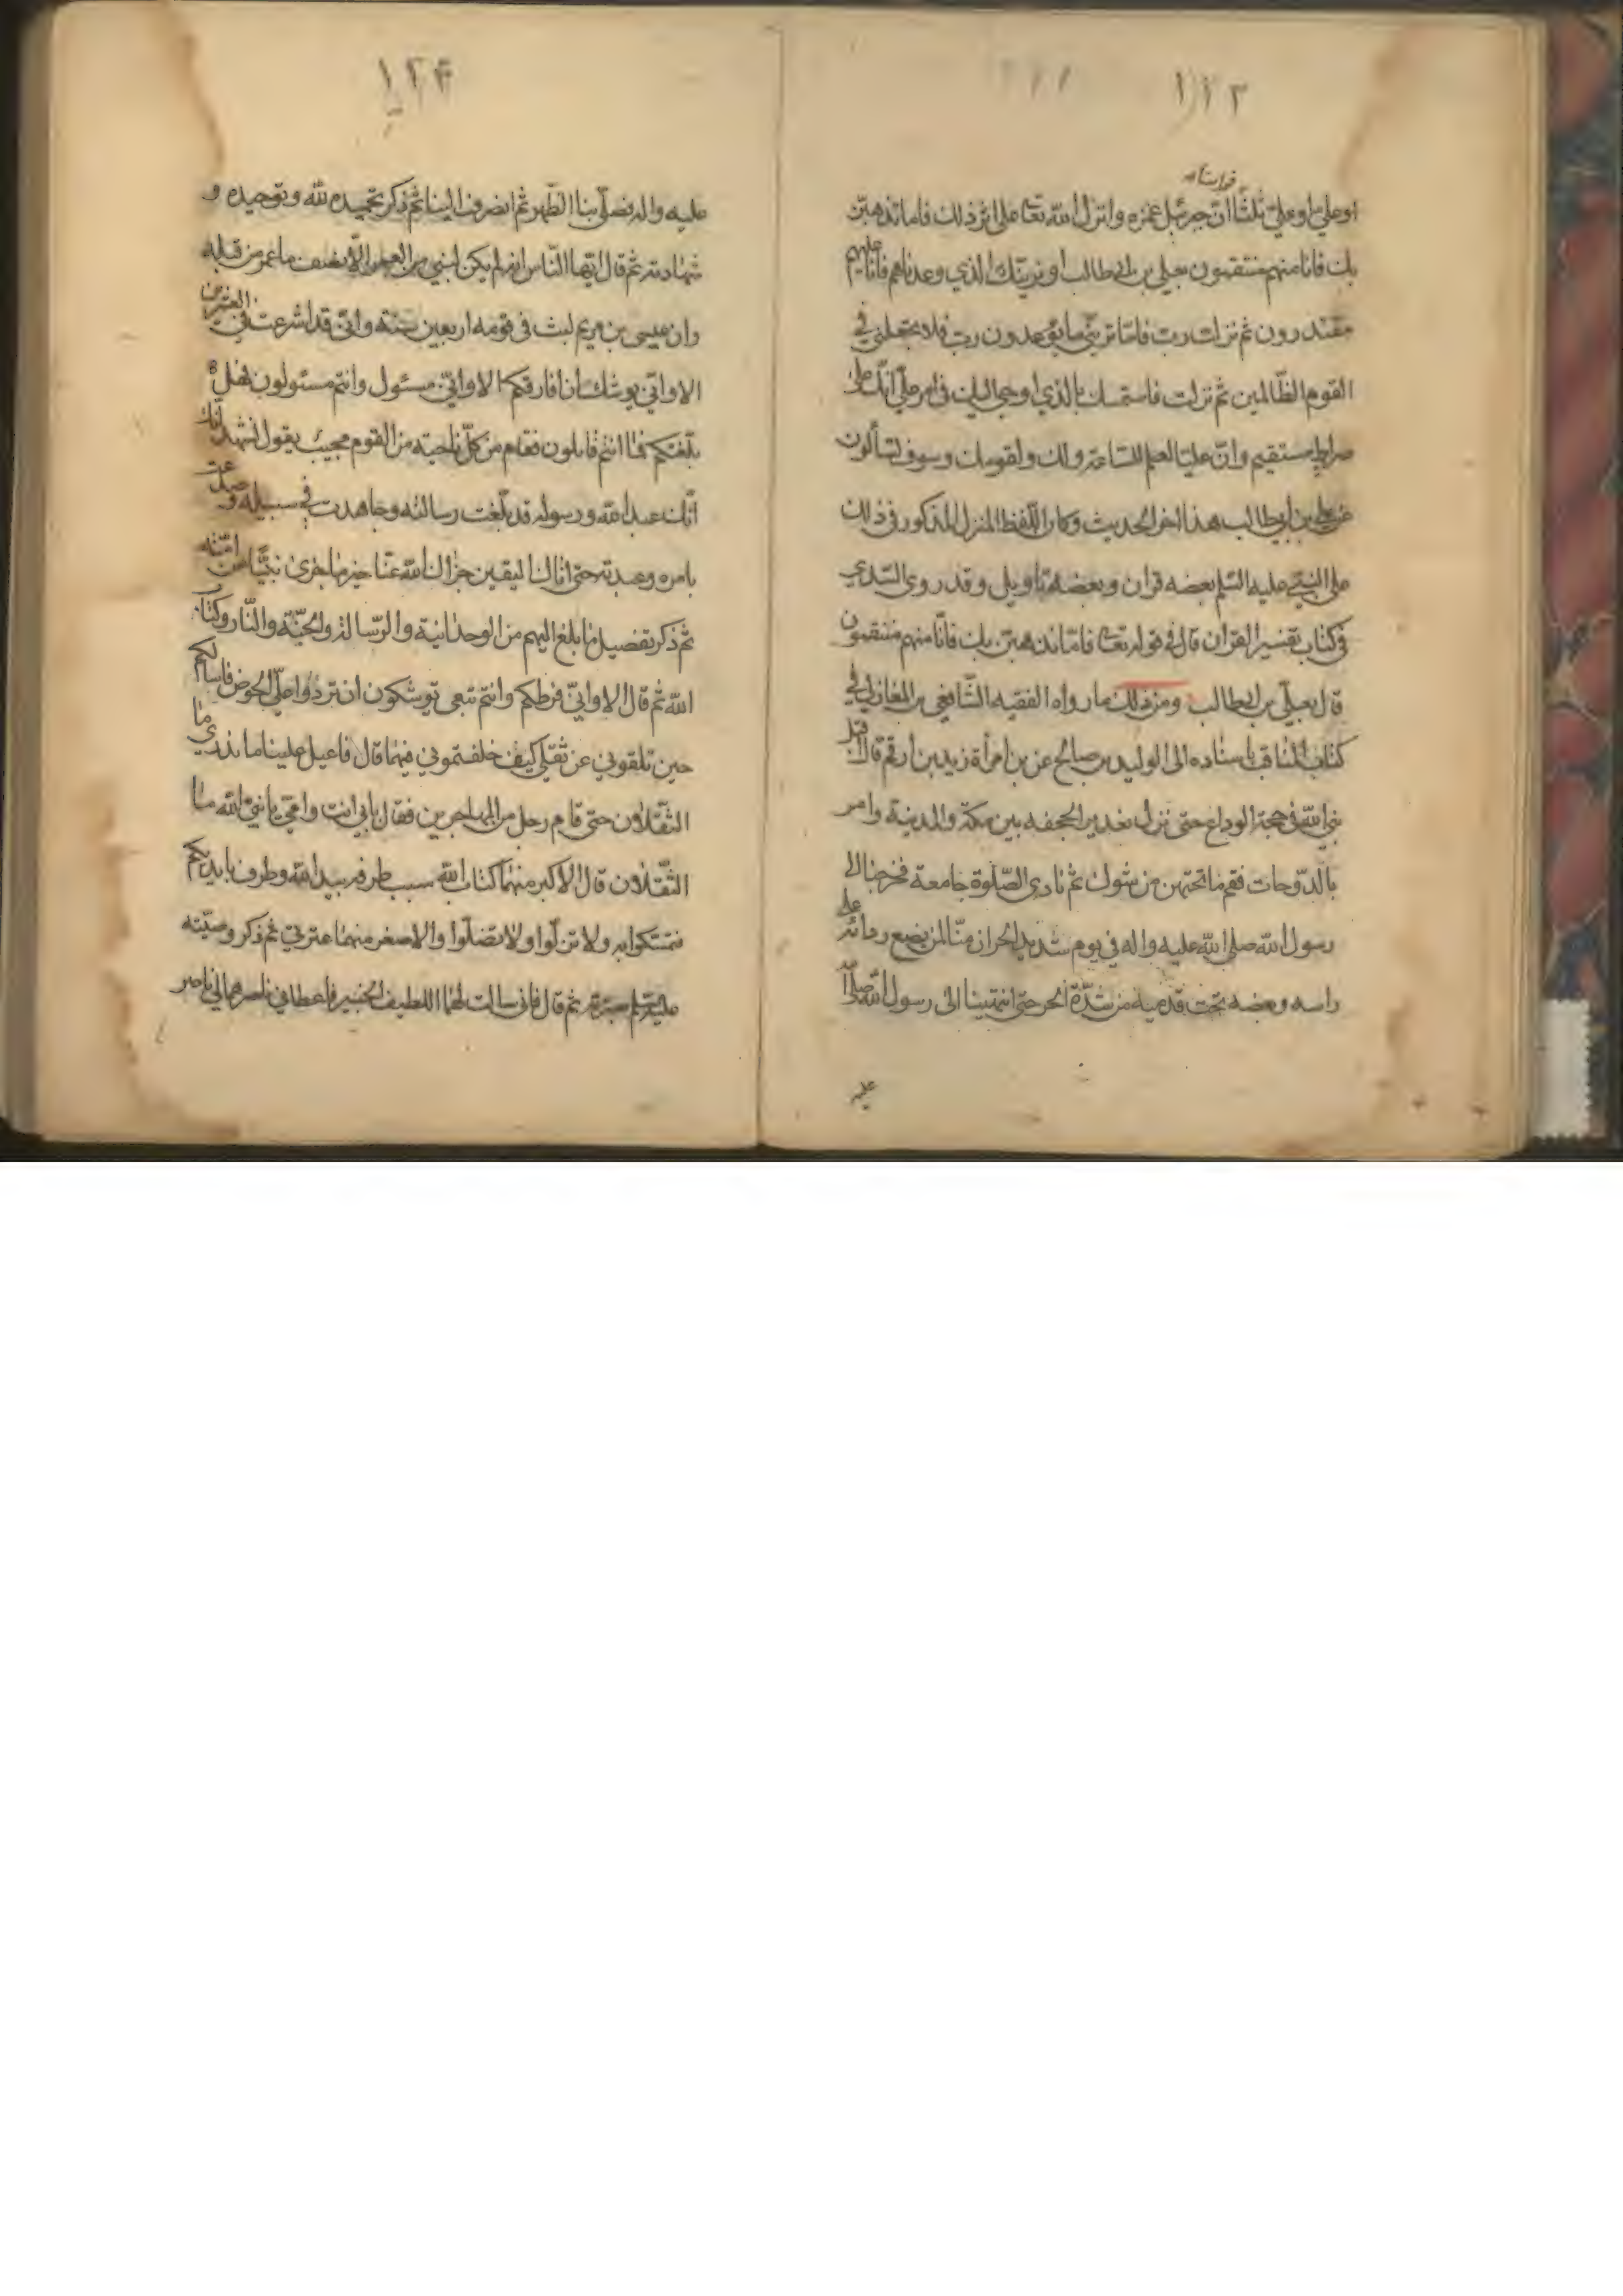 ١٢٣
فرأينا انه
او علي او علي ثلثا ان جبرئيل غمزه وانزل الله تعا على اثر ذلك فاما نذهبن
بك فانا منهم منتقمون بعلي بن ابي طالب او نرينك الذي وعدناهم فانا عليهم
مقتدرون ثم نزلت رب فاما تريني ما يوعدون رب فلا تجعلني في
القوم الظالمين ثم نزلت فاستمسك بالذي اوحي اليك في امر علي انك على
صراط مستقيم وان عليا لعلم للساعة ولك ولقومك وسوف تسألون
عن علي بن ابيطالب هذا اخر الحديث وكان اللفظ المنزل المذكور في ذلك
على النبي عليه السلم بعضه قران وبعضه تاويل وقد روى السدي
في كتاب تفسير القران قال في قوله تعا فاما نذهبن بك فانا منهم منتقمون
قال بعلي بن ابيطالب ومن ذلك ما رواه الفقيه الشافعي بن المغازلي في
كتاب المناقب باسناده الى الوليد بن صالح عن بن امرأة زيد بن ارقم قال اقبل
نبي الله في حجة الوداع حتى نزل بغدير الجحفه بين مكة والمدينة وامر
بالدوحات فقم ما تحتهن من شوك ثم نادى الصلوة جامعة فخرجنا الى
رسول الله صلى الله عليه واله في يوم شديد الحر ان منا لمن يضع ردائه على
راسه وبعضه تحت قدميه من شدة الحر حتى انتهينا الى رسول الله صلى الله
عليه
١٢۴
عليه واله فصلى بنا الظهر ثم انصرف الينا ثم ذكر تحميده لله وتوحيده و
شهادته ثم قال ايها الناس انه لم يكن لنبي من العمر الا نصف ما عمر من قبله
وان عيسى بن مريم لبث في قومه اربعين سنة واني قد اشرعت في العشرين
الا واني يوشك ان افارقكم الا واني مسئول وانتم مسئولون فهل
بلغتكم فما انتم قايلون فقام من كل ناحية من القوم مجيب يقول نشهد انك
انك عبد الله ورسوله قد بلغت رسالته وجاهدت في سبيله وصدعت
بامره وعبدته حتى اتاك اليقين جزاك الله عنا خير ما جزى نبيا عن امته
ثم ذكر تفصيل ما بلغ اليهم من الوحدانية والرسالة والجنة والنار وكتاب
الله ثم قال الا واني فرطكم وانتم تبعي توشكون ان تردوا علي الحوض فاسألكم
حين تلقوني عن ثقلي كيف خلفتموني فيهما قال فاعيل علينا ما ندري ما
الثقلان حتى قام رجل من المهاجرين فقال بابي انت وامي يا نبي الله ما
الثقلان قال الاكبر منهما كتاب الله سبب طرفه بيد الله وطرف بايديكم
فتمسكوا به ولا تزلوا ولا تضلوا والاصغر منهما عترتي ثم ذكر وصيته
ثم قال فاني سالت لهما اللطيف الخبير فاعطاني ناصرهما لي ناصر